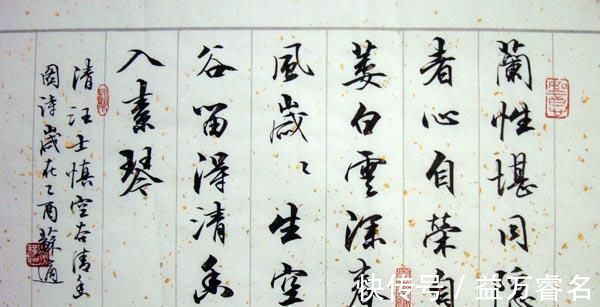 蘭性堪同隱
者心自榮自
萎白雲深春
風歲〻生空
谷留得清香
入素琴
清汪士慎空谷清香
圖詩歲在乙酉蘇適
快传号 / 益万睿名